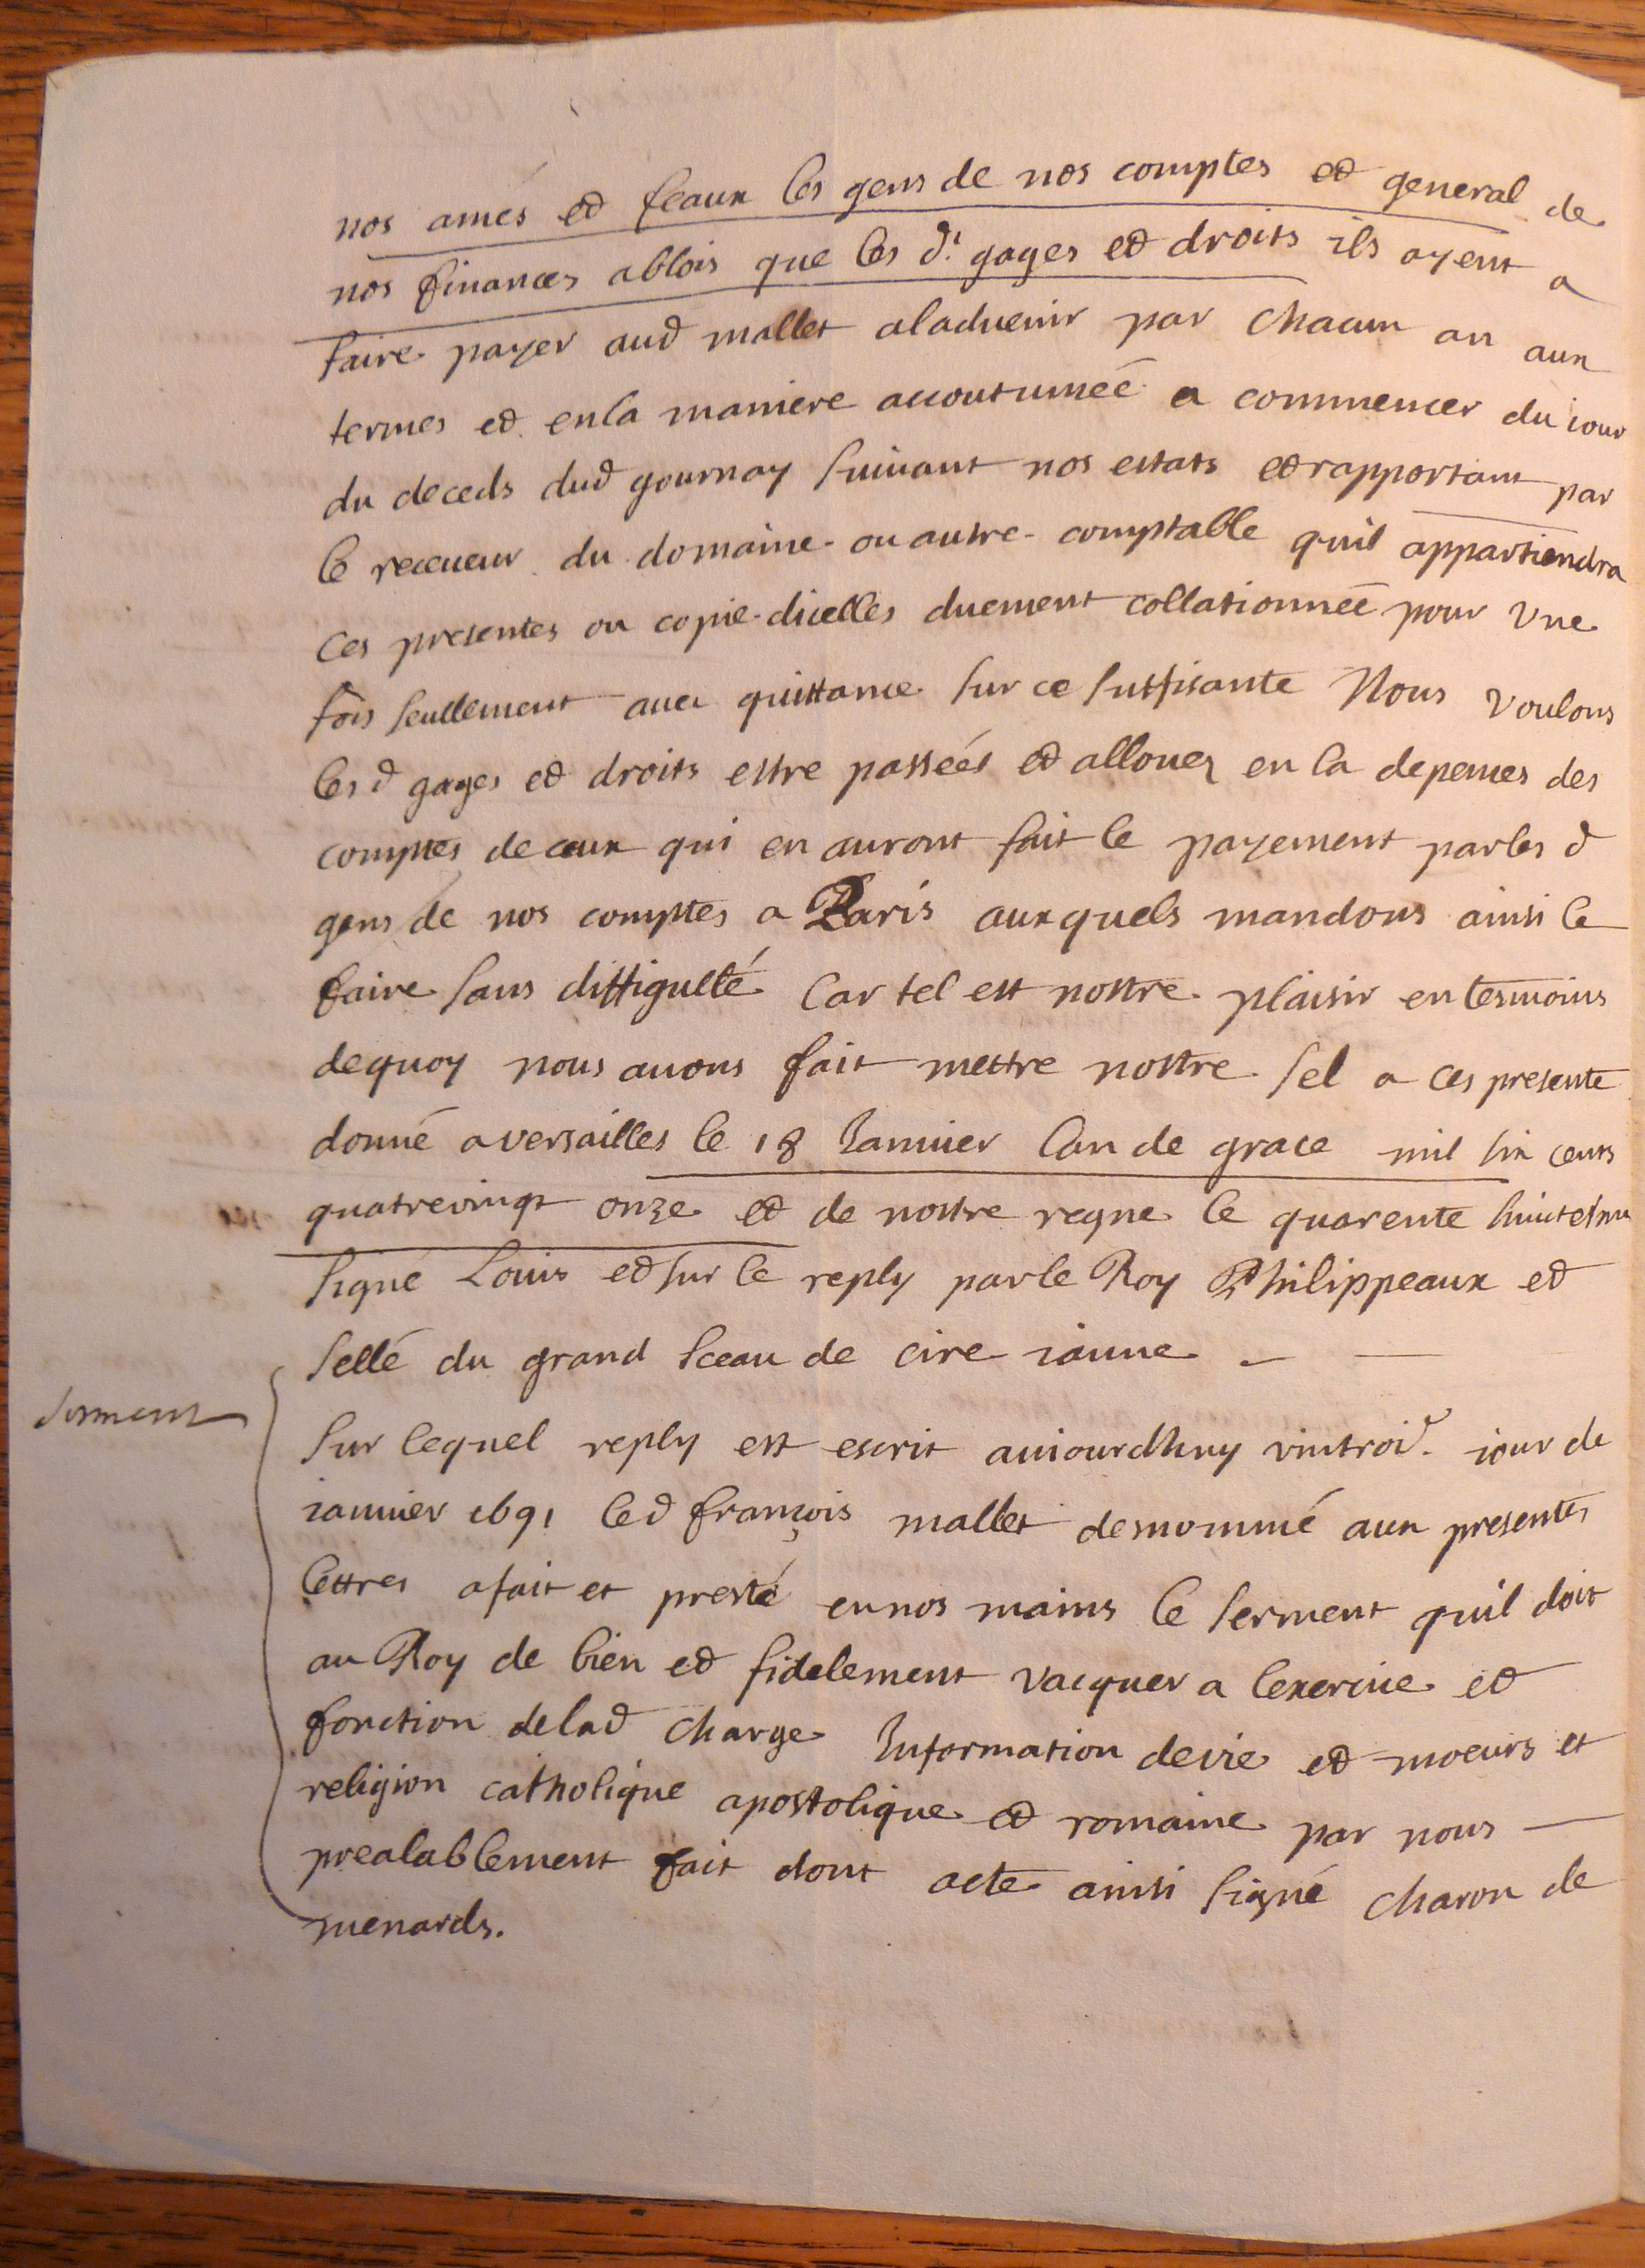 nos amés et feaux les gens de nos comptes et general de
nos finances ablois que les d.t gages et droits ils ayent a
faire payer aud mallet aladuenir par chacun an aux
termes et enla maniere accoutumeé a commencer du iour
du deceds dud gournay suivant nos estats et rapportant par
le receueur du domaine ou autre comptable quil appartiendra
ces presentes ou copie dicelles duement collationneé pour vne
fois seullement auec quittance sur ce suffisante Nous voulons
les d gages et droits estre passeés et allouez en la depences des
comptes de ceux qui en auront fait le payement par les d
gens de nos comptes a Paris auxquels mandons ainsi le
faire sans diffigulté Car tel est nostre plaisir en tesmoins
dequoy nous auons fait mettre nostre sel a ces presente
donné a versailles le 18 Januier lan de grace mil six cents
quatrevingt onze et de nostre regne le quarente huictesme
signé Louis et sur le reply par le Roy Philippeaux et
sellé du grand sceau de cire iaune
serment
Sur lequel reply est escrit auiourdhuy vintroi.e iour de
ianuier 1691 led françois mallet desnommé aux presentes
lettres a fait et presté en nos mains le serment quil doit
au Roy de bien et fidelement vacquer a lexercice et
fonction delad charge Information de vie et moeurs et
religion catholique apostolique et romaine par nous
prealablement fait dont acte ainsi signé charon de
menards.